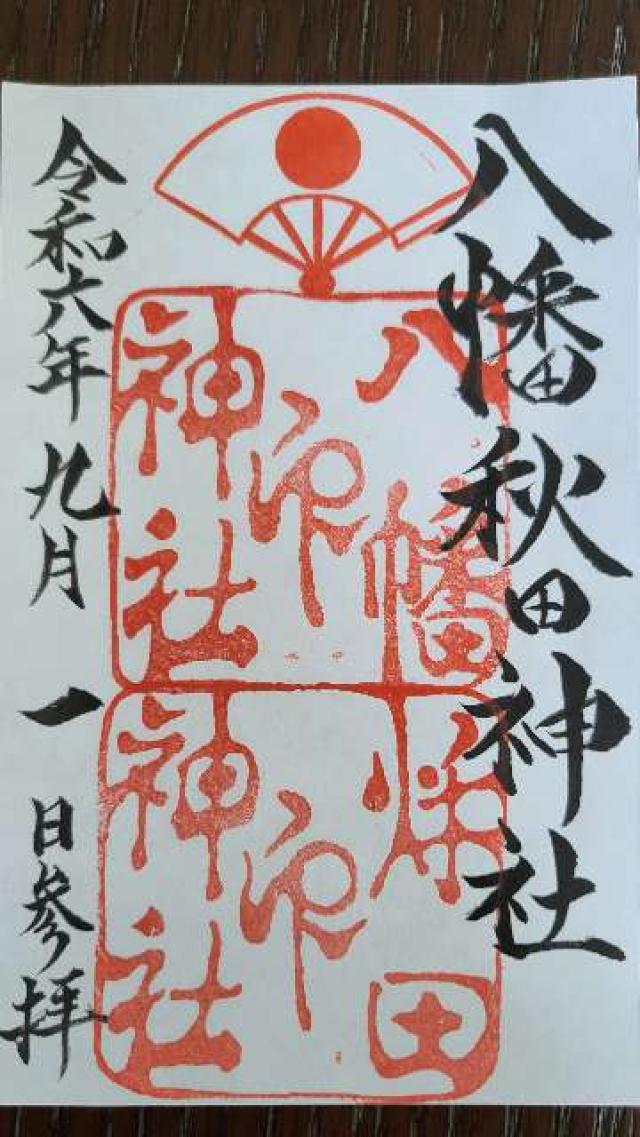 八幡秋田神社
八幡
神社印
秋田
神社印
令和六年九月一日参拝